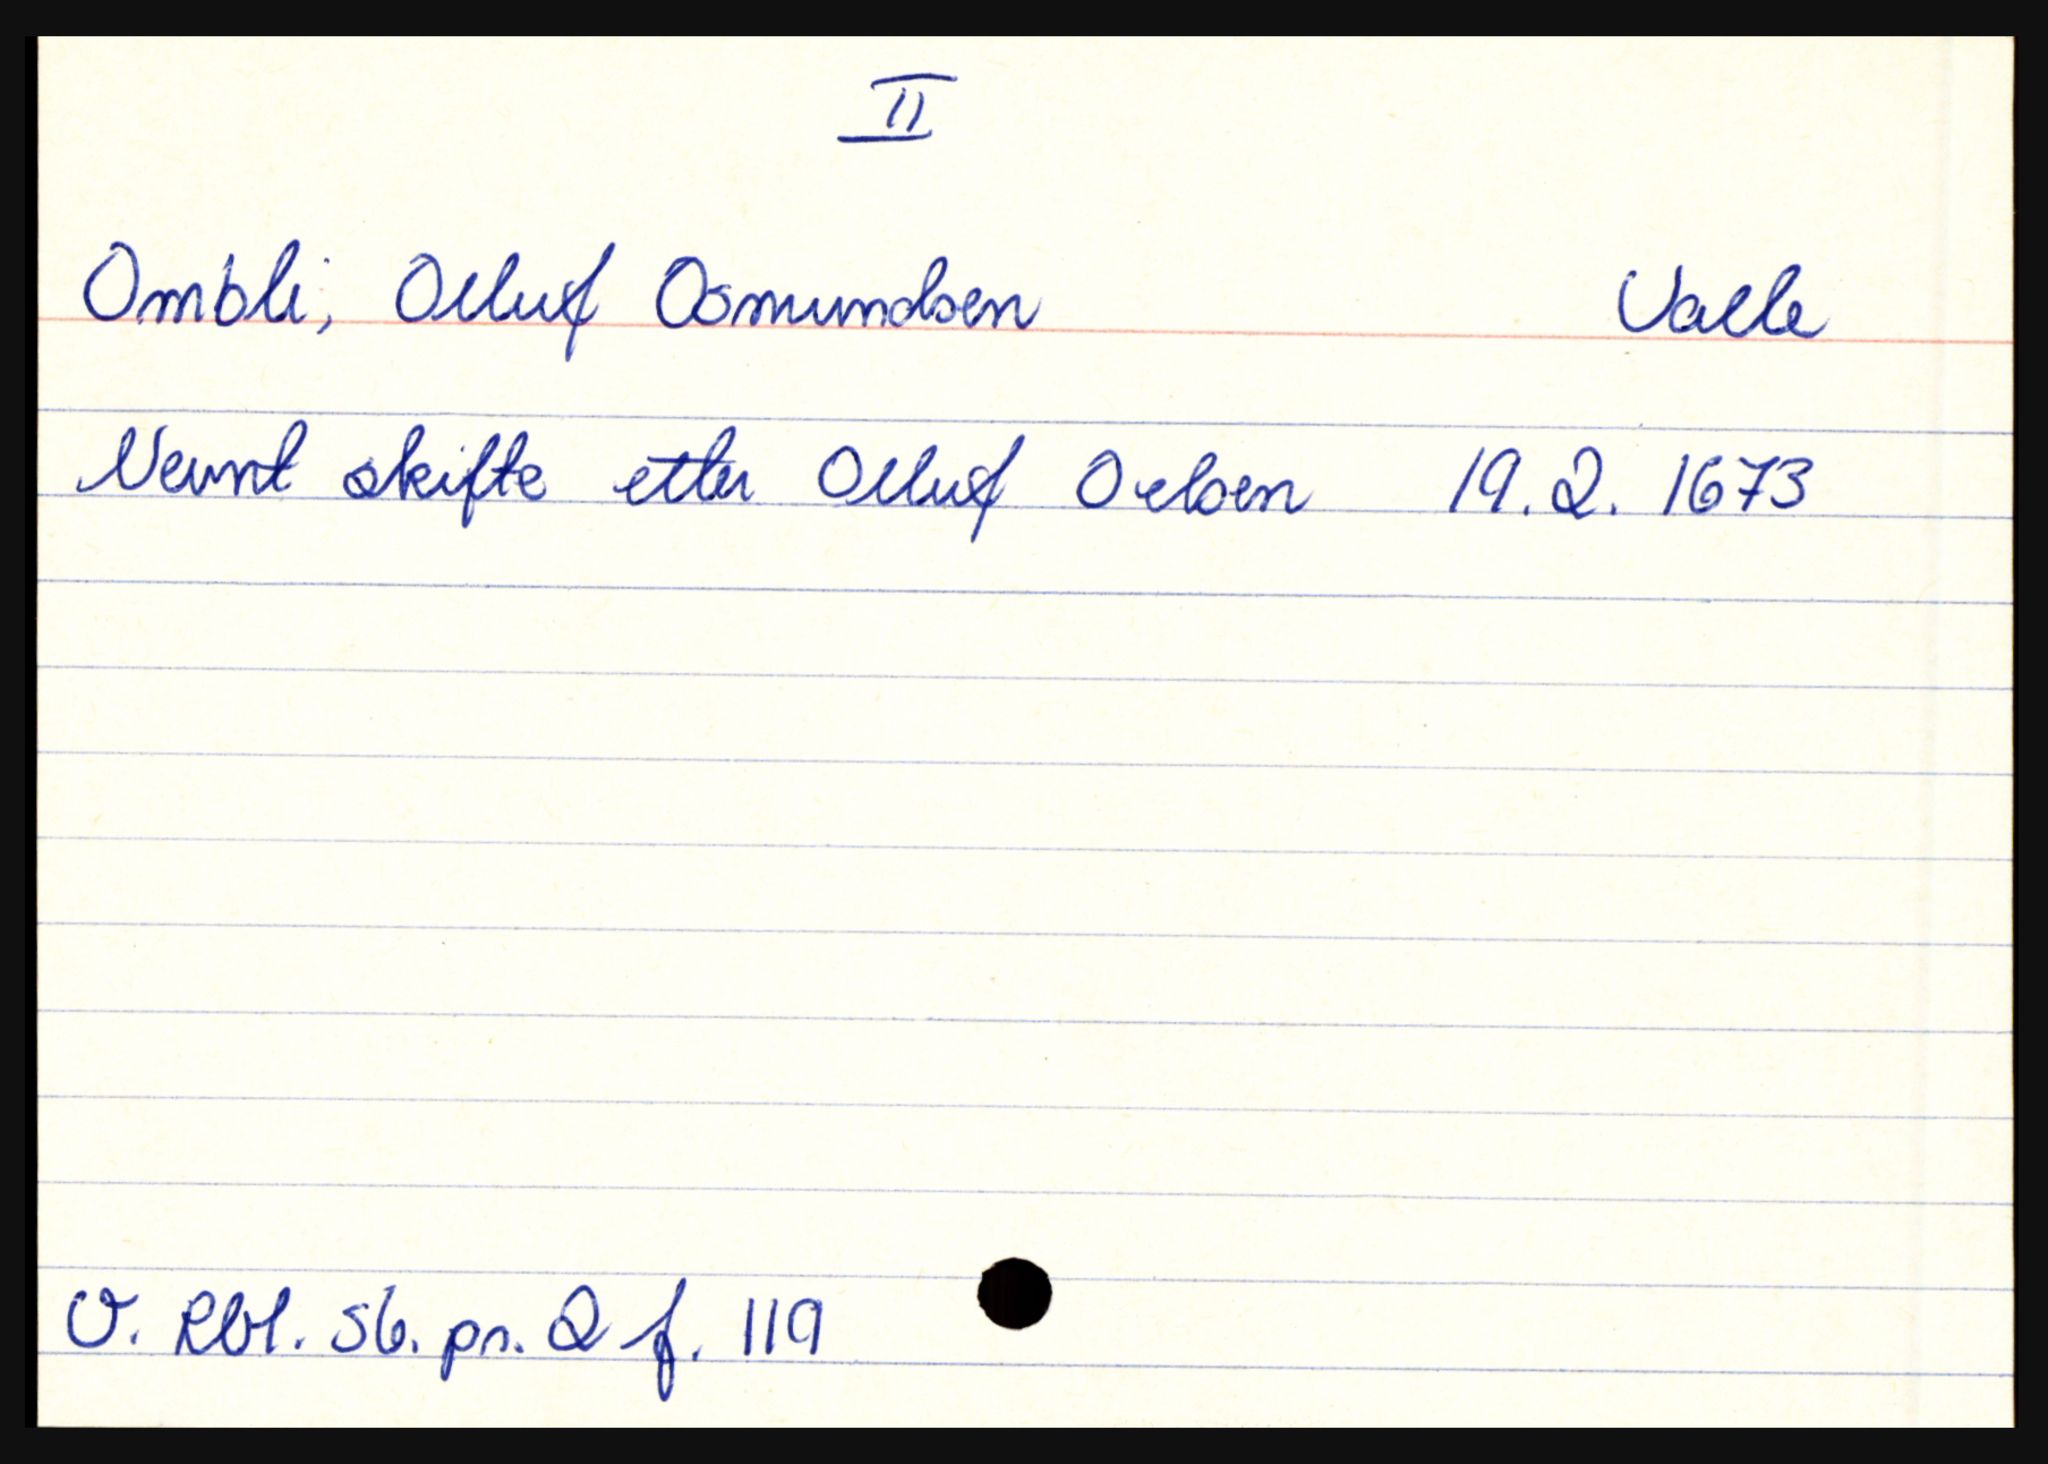 II
Ombli, Olluf Osmundsen Valle
Nevnt skifte etter Olluf Oelsen 19. 2. 1673
V. Rbl. sb. pr. 2 f. 119